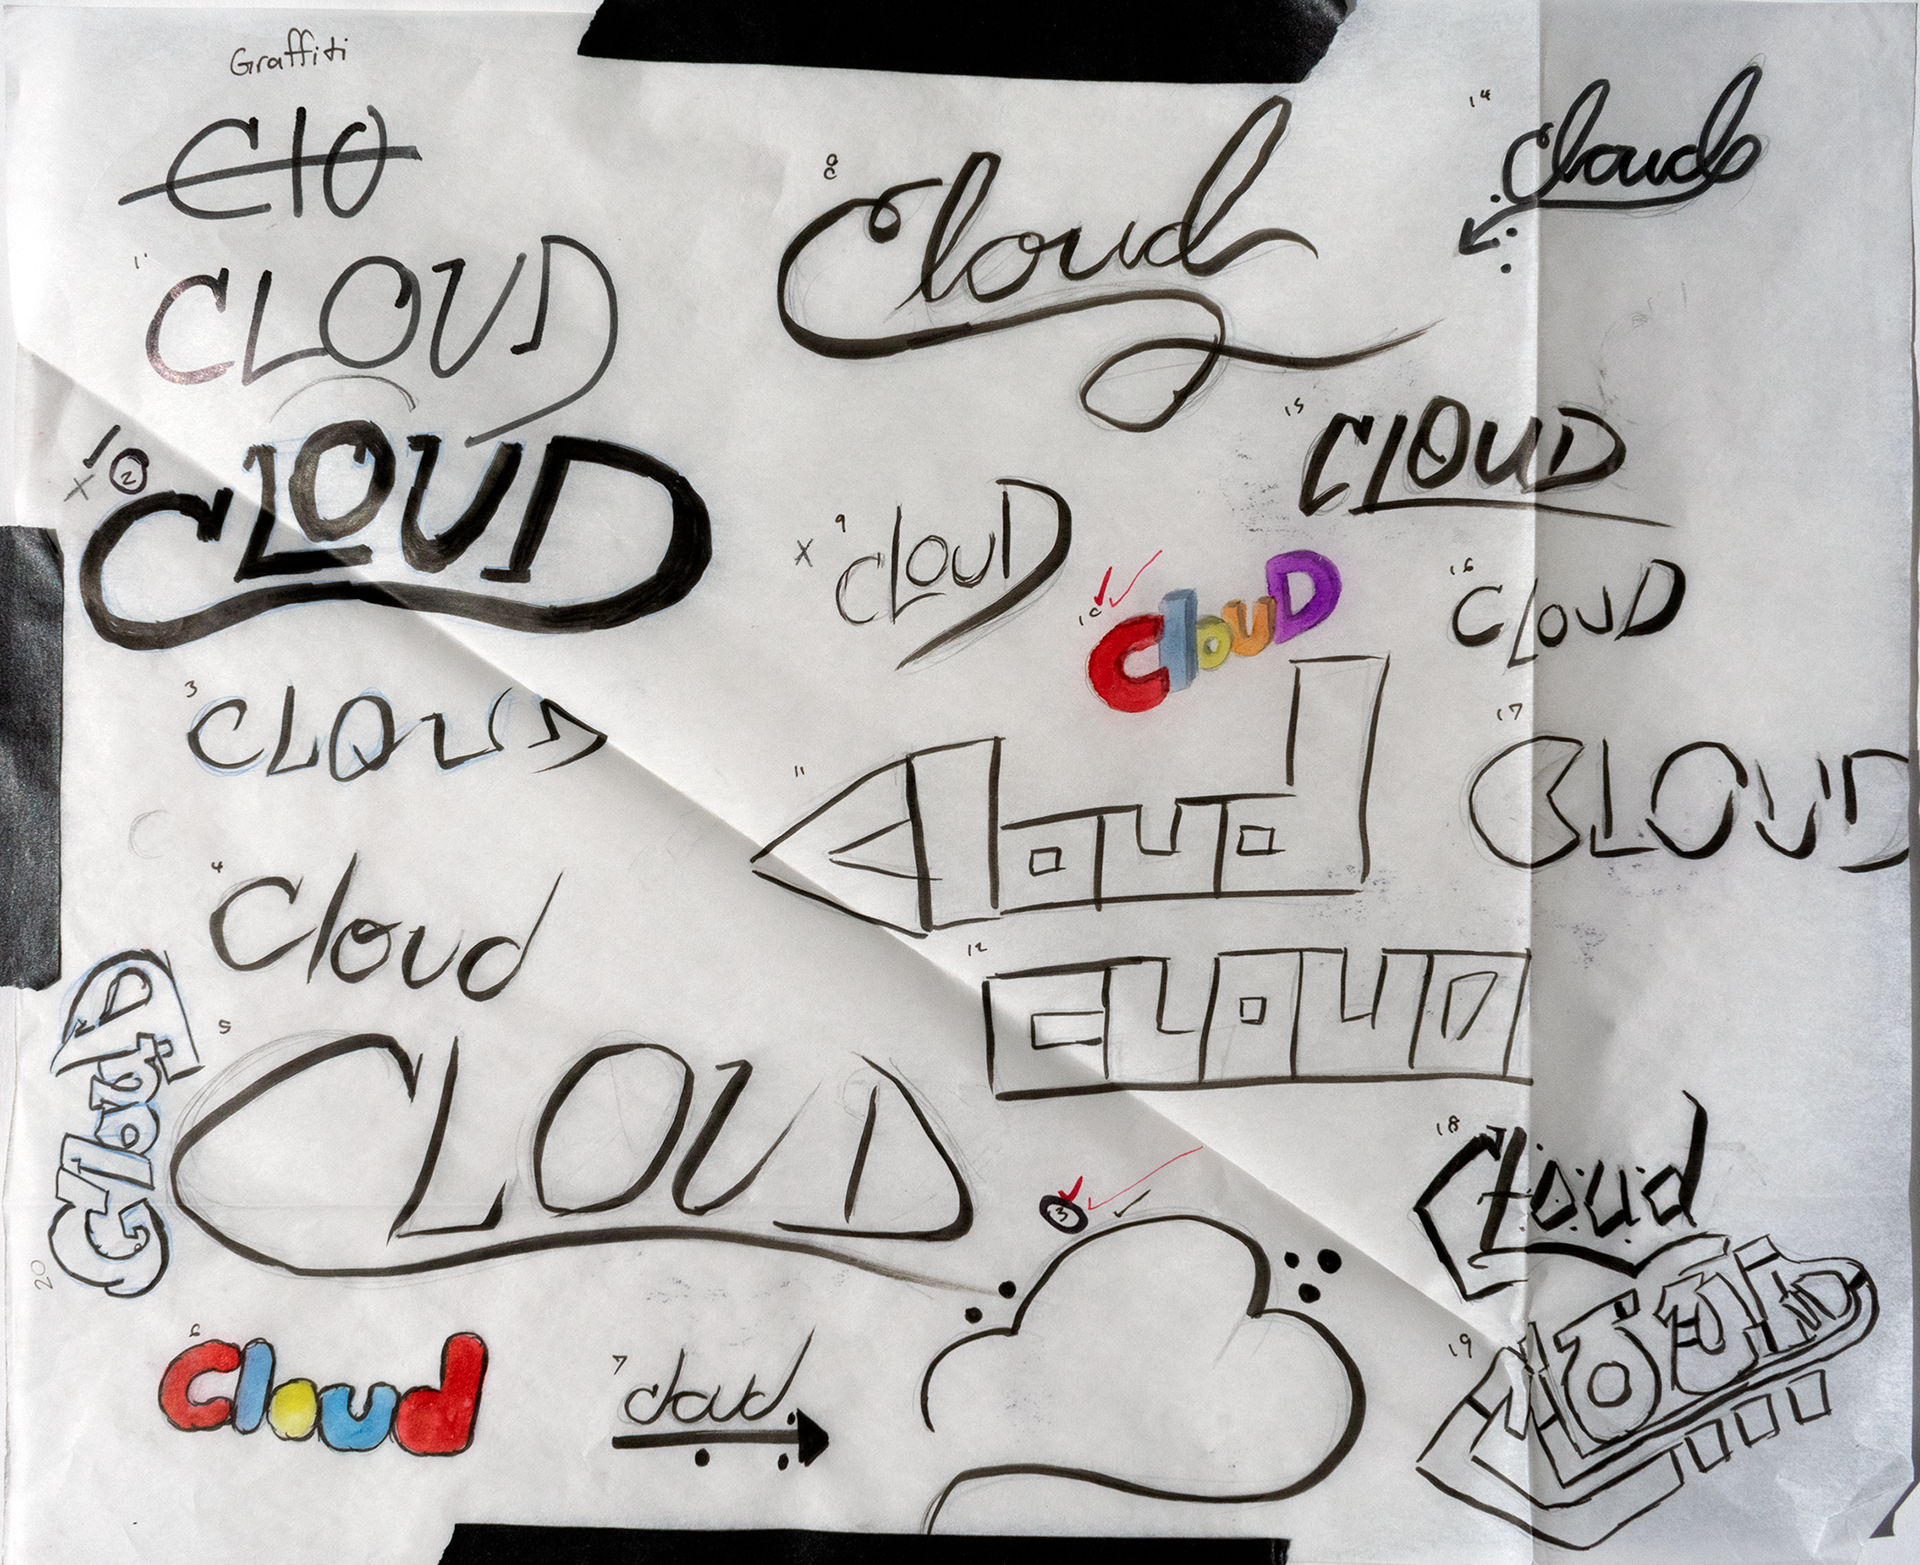 Graffiti
C10
1
CLOUD
2
CLOUD
3
CLOUD
4
Cloud
5
CLOUD
6
Cloud
7
cloud
8
Cloud
9
CLOUD
10
ClouD
11
Cloud
12
CLOUD
13
14
Cloud
15
CLOUD
16
CLOUD
17
CLOUD
18
Cloud
19
CLOUD
20
ClouD